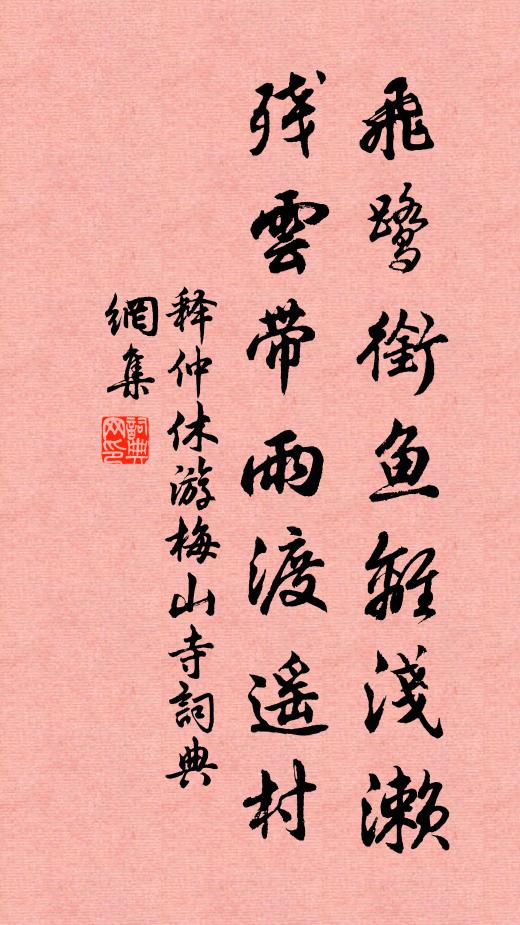 飛鷺銜魚離淺瀨
残雲帶雨渡遥村
释仲休游梅山寺詞典
網集
詞典网印